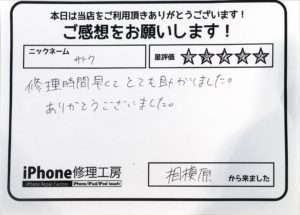 本日は当店をご利用頂きありがとうございます！
ご感想をお願いします！
ニックネーム
サトウ
星評価
修理時間早くて とても助かりました。
ありがとうございました。
iPhone修理工房
iPhone Repair Factory iPhone/iPad/iPod touch
相模原 から来ました